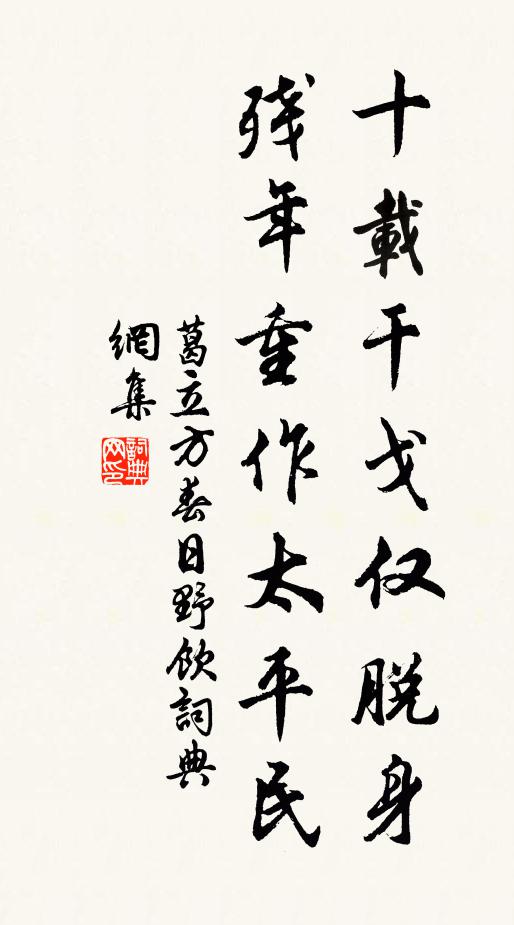 十載干戈仅脱身
殘年重作太平民
葛立方春日野飲詞典
網集
詞典
网印